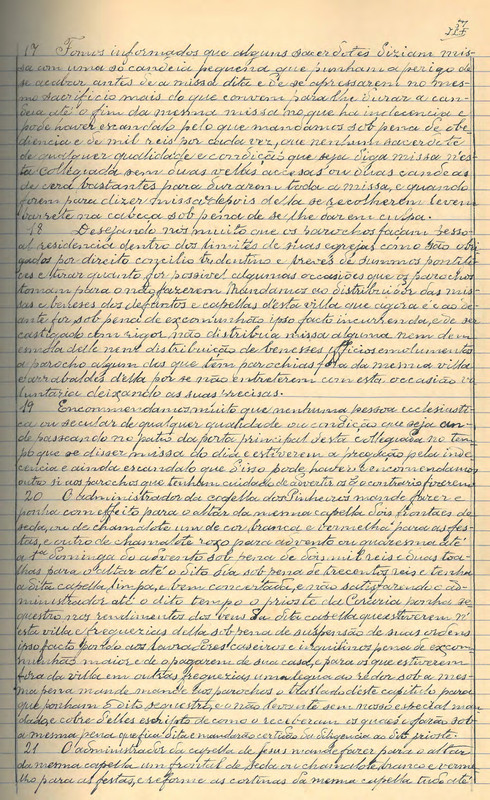 17 Fomos informados que alguns sacerdotes diziam mis-
sa com uma só candeia pequena que punham a perigo de
se acabar antes de a missa dita e de se apressarem no mes-
mo sacrificio mais do que convem para lhe durar a can-
deia até o fim da mesma missa no que ha indecencia e
pode haver escandalo pelo que mandamos sob pena de obe-
diencia e de mil reis por cada vez, que nenhum sacerdote
de qualquer qualidade e condição que seja diga missa nes-
ta collegiada sem duas vellas accesas ou duas candeas
de cera bastantes para durarem toda a missa, e quando
forem para dizer missa e depois della se recolherem levem
barrete na cabeça sob pena de se lhe dar em culpa.
18 Desejando nós muito que os parochos façam pesso-
al residencia dentro dos limites de suas egrejas como são obri-
gados por direito concilio tridentino e breves de summos pontifi-
ces e tirar quanto for possivel algumas occasiões que os parochos
tomam para o não fazerem Mandamos ao distribuidor das mis-
sas e beneses dos defuntos e capellas desta villa que agora é e ao de-
ante for, sob pena de excomunhão ipso facto incurrenda, e de ser
castigado com rigor, não distribua missa alguma nem de m
esmola delle nem distribuição de benesses officios emolumentos
a parocho algum dos que tem parochias fóra da mesma villa
e arrabaldes della por se não entreterem com esta occasião vo-
luntaria deixando as suas precisas.
19 Encommendamos muito que nenhuma pessoa ecclesiasti-
ca ou secular de qualquer qualidade ou condição que seja an-
de passeando no patio da porta principal desta collegiada no tem-
po que se disser missa do dia e estiverem a pregação pela inde-
cencia e ainda escandalo que n'isso pode haver e encomendamos
outro si aos parochos que tenham cuidado de advertir os q o contrario fizerem
20 O administrador da capella dos Pinheiros mande fazer e
ponha com effeito para o altar da mesma capella dois frontaes de
seda, ou de chamalote um de cor branca e vermelha para as fes-
tas, e outro de chamalote roxo para advento ou quaresma até
a 1ª dominga do advento sob pena de dois mil reis e duas toa-
lhas para o altar até o dito dia sob pena de trecentos reis e tenha
a dita capella limpa, e bem concertada, e não satisfazendo o ad-
ministrador até o dito tempo o prioste da Coraria ponha se-
questro nos rendimentos dos bens da dita capella que estiverem n'
esta villa e freguezias della sob pena de suspensão de suas ordens
ipso facto pondo aos lavradores caseiros e inquilinos pena de excom-
munhão maior e de o pagarem de sua casa, e para os que estiverem
fora da villa em outras freguezias uma legua ao redor sob a mes-
ma pena mande mande aos parochos o traslado deste capitulo para
que ponham o dito sequestro, e o não levante sem nosso especial man-
dado, e cobre delles escripto de como o receberam os quaes o farão sob
a mesma pena que fica dita e mandarão certidão da diligencia ao dito prioste.
21 O administrador da capella de Jesus mande fazer para o altar
da mesma capella um frontal de seda ou chamalote branco e verme-
lho para as festas, e reforme as cortinas da mesma capella tudo até